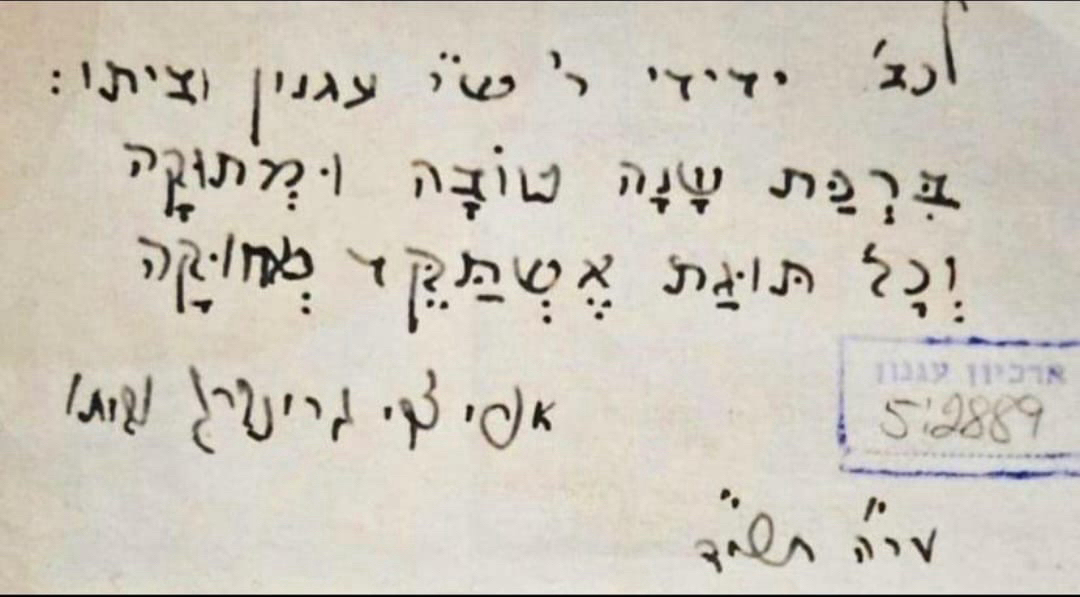 לכב' ידידי ר' ש"י עגנון וביתו:
בִּרְכַּת שָׁנָה טוֹבָה וּמְתוּקָה
וְכָל תּוּגַת אֶשְׁתַּקֵּד מְחוּקָה
אורי צבי גרינברג וביתו
ארכיון עגנון
5:2889
ער"ה תשי"ד